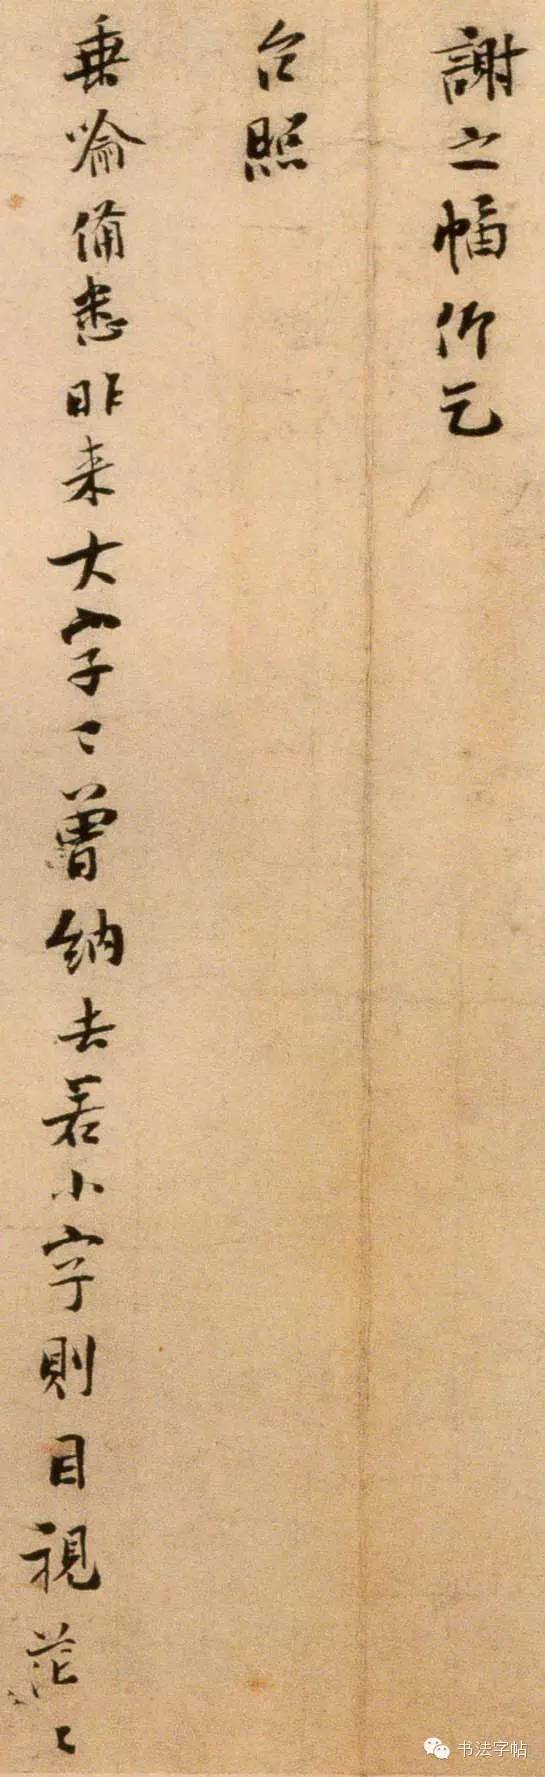 謝之幅仰乞
台照
垂喻備悉昨来大字々曾納去若小字則目視茫々
书法字帖